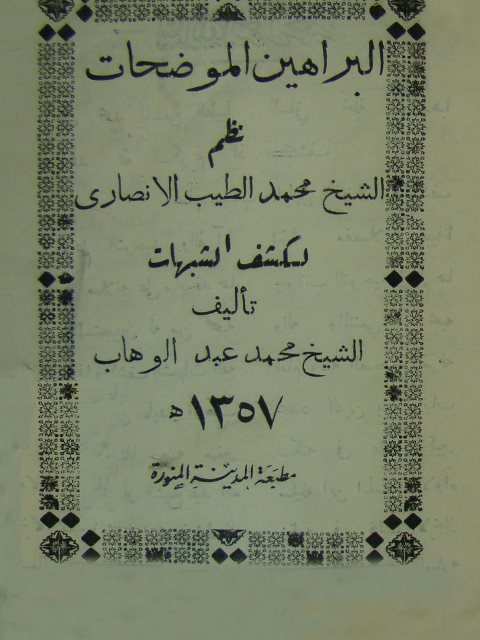 البراهين الموضحات
نظم
الشيخ محمد الطيب الانصارى
لكشف الشبهات
تأليف
الشيخ محمد عبد الوهاب
١٣٥٧ ه
مطبعة المدينة المنورة